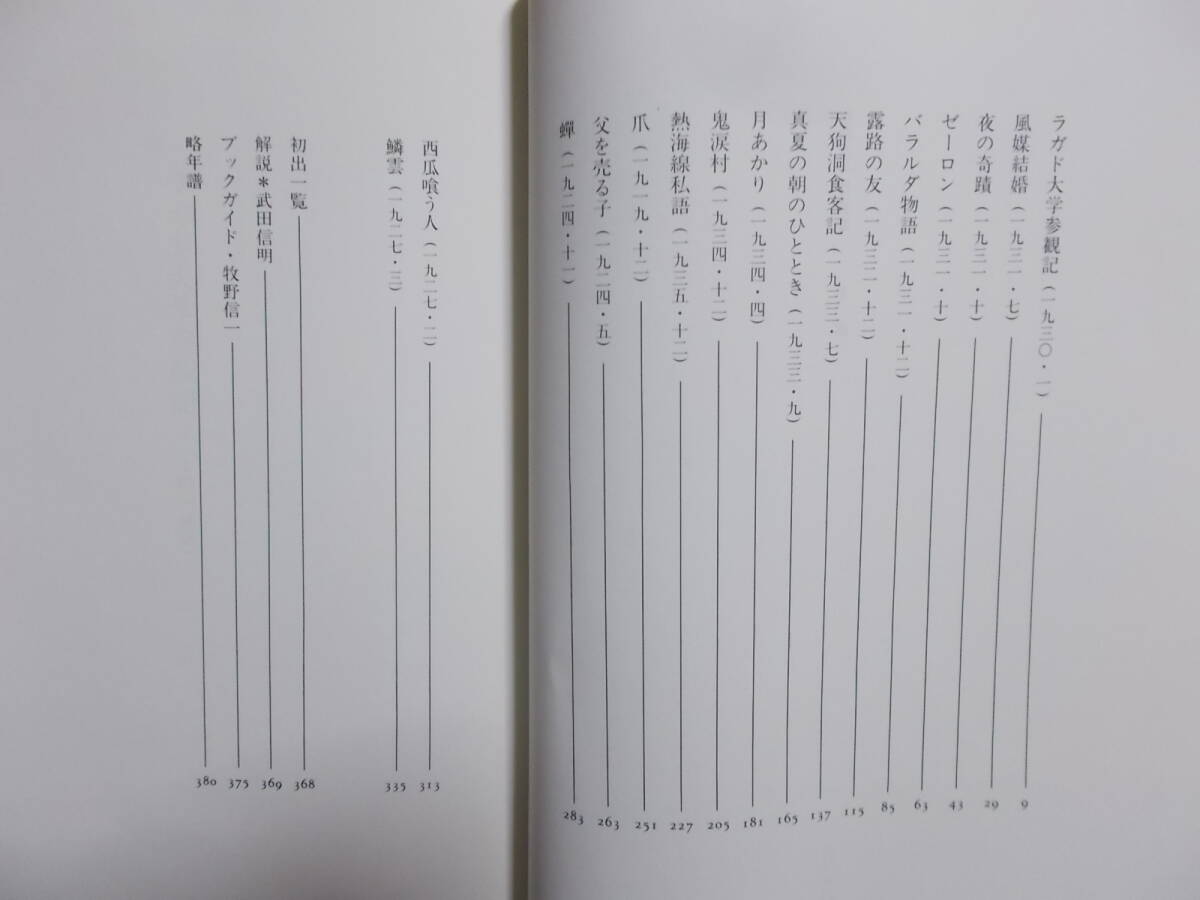 ラガド大学参観記(一九三〇・一) 9
風媒結婚(一九三一・七) 29
夜の奇蹟(一九三一・十) 43
ゼーロン(一九三一・十) 63
バラルダ物語(一九三一・十二) 85
露路の友(一九三二・十二) 115
天狗洞食客記(一九三三・七) 137
真夏の朝のひととき(一九三三・九) 165
月あかり(一九三四・四) 181
鬼涙村(一九三四・十二) 205
熱海線私語(一九三五・十二) 227
爪(一九一九・十二) 251
父を売る子(一九二四・五) 263
蟬(一九二四・十一) 283
西瓜喰う人(一九二七・二) 313
鱗雲(一九二七・三) 335
初出一覧 368
解説＊武田信明 369
ブックガイド・牧野信一 375
略年譜 380